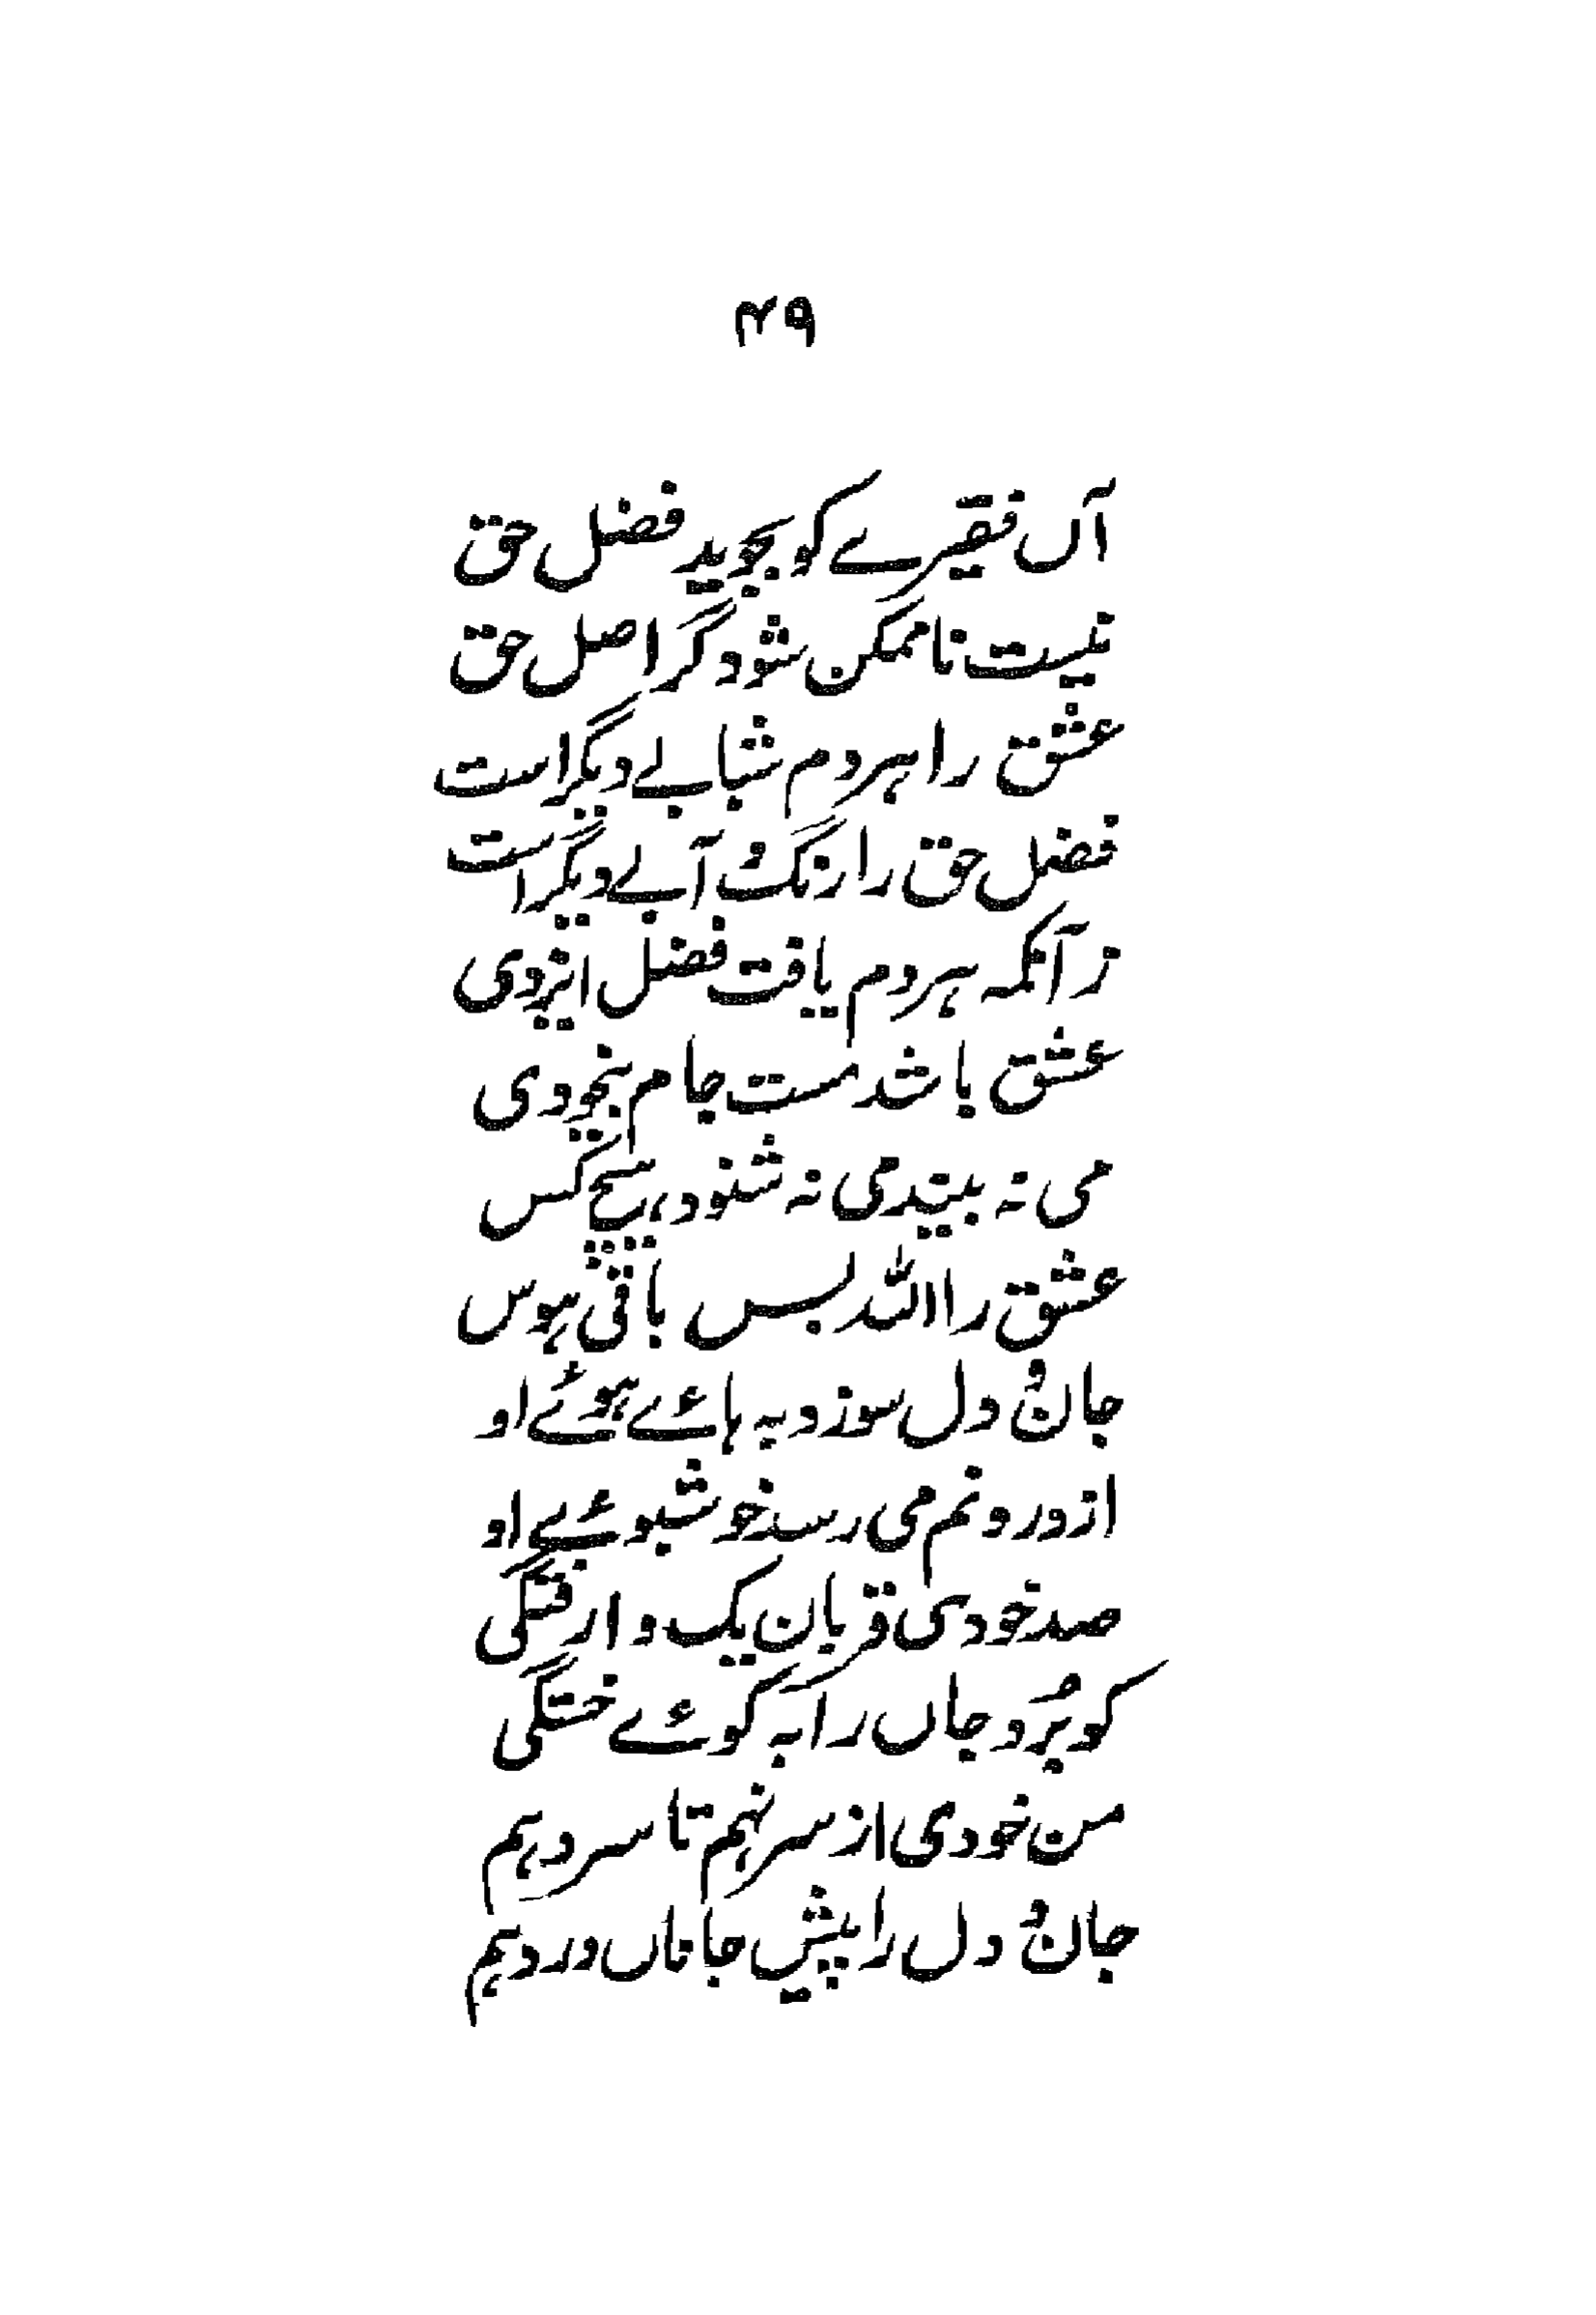 ۴۹
آں فقیرے کو بجوید فضل حق
نیست ناممکن شود گر اصل حق
عشق را ہر دم شبابے دیگر است
فضل حق را رنگ و آبے دیگر است
ز آنکہ ہر دم یافت فضل ایزدی
عشق باشد مست جام بیخودی
می نہ بیند می نہ شنود ہیچ کس
عشق را اللہ بس باقی ہوس
جان و دل سوزد بہ ہائے ہوئے او
از درونم می رسد خوشبوئے او
صد خودی قربان یک وارفتگی
کو بُرد جاں را بہ کوئے خستگی
من خودی از سر نہم تا سر دہم
جان و دل را پیش جاناں در دہم